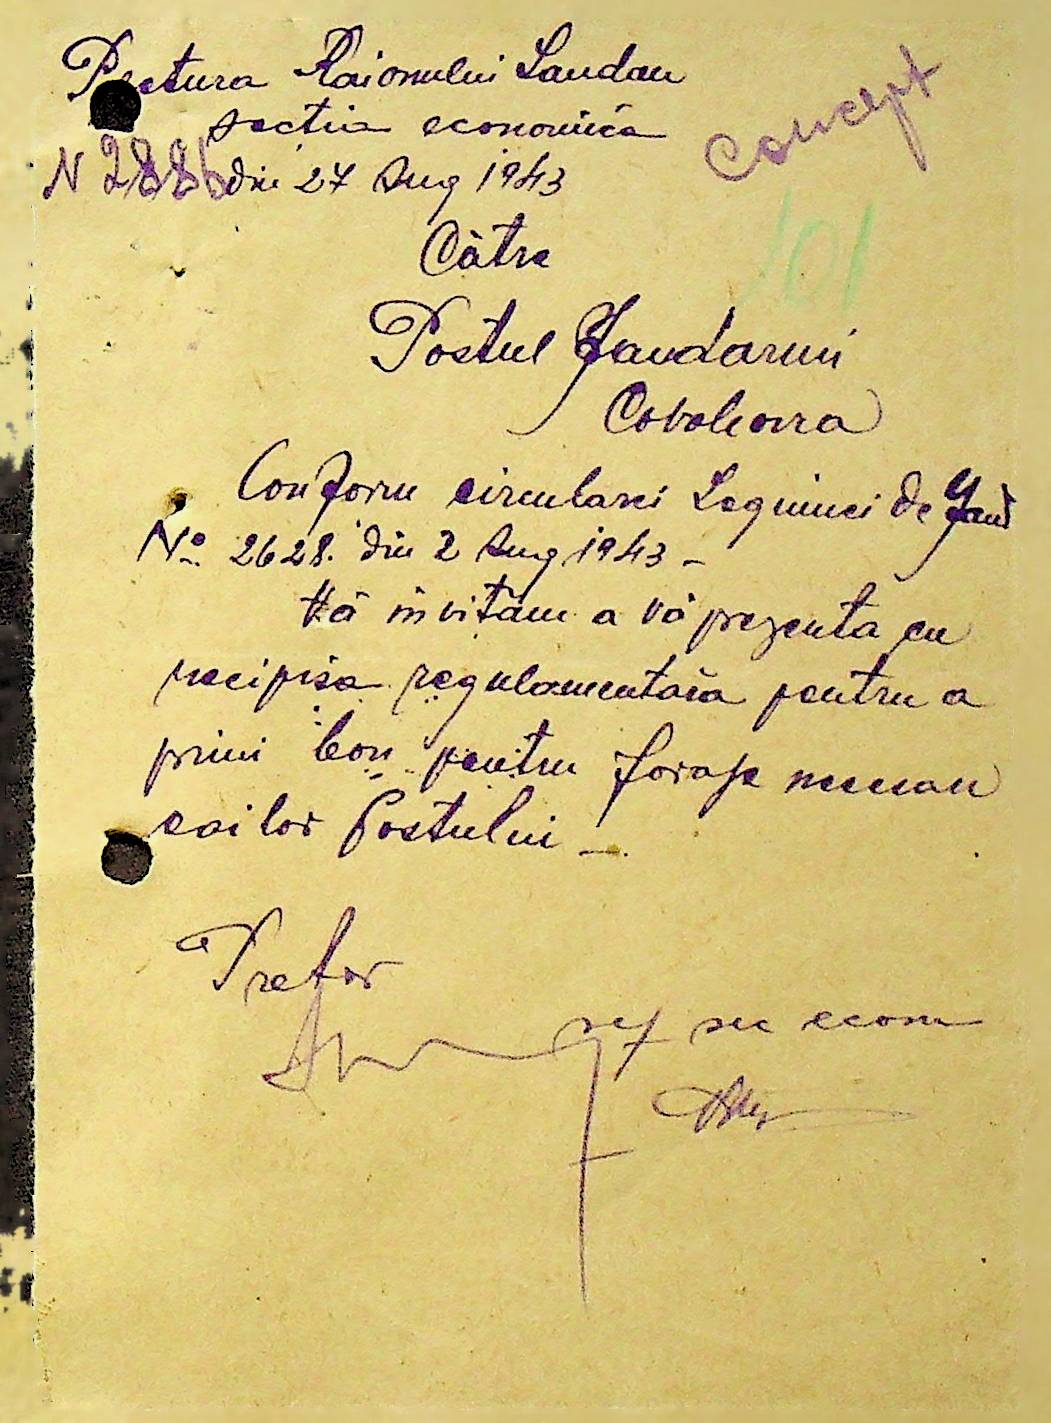 Pretura Raionului Landau
concept
sectia economica
N 2886 din 27 Aug 1943
101
Către
Postul Jandarmi
Covaleovca
Conform circularei Legiunei de Jand
No 2628. din 2 Aug 1943 –
Vă invităm a vă prezenta cu
recipisa regulamentară pentru a
primi bon pentru foraje necesar
cailor Postului –
Pretor
sef sec econ